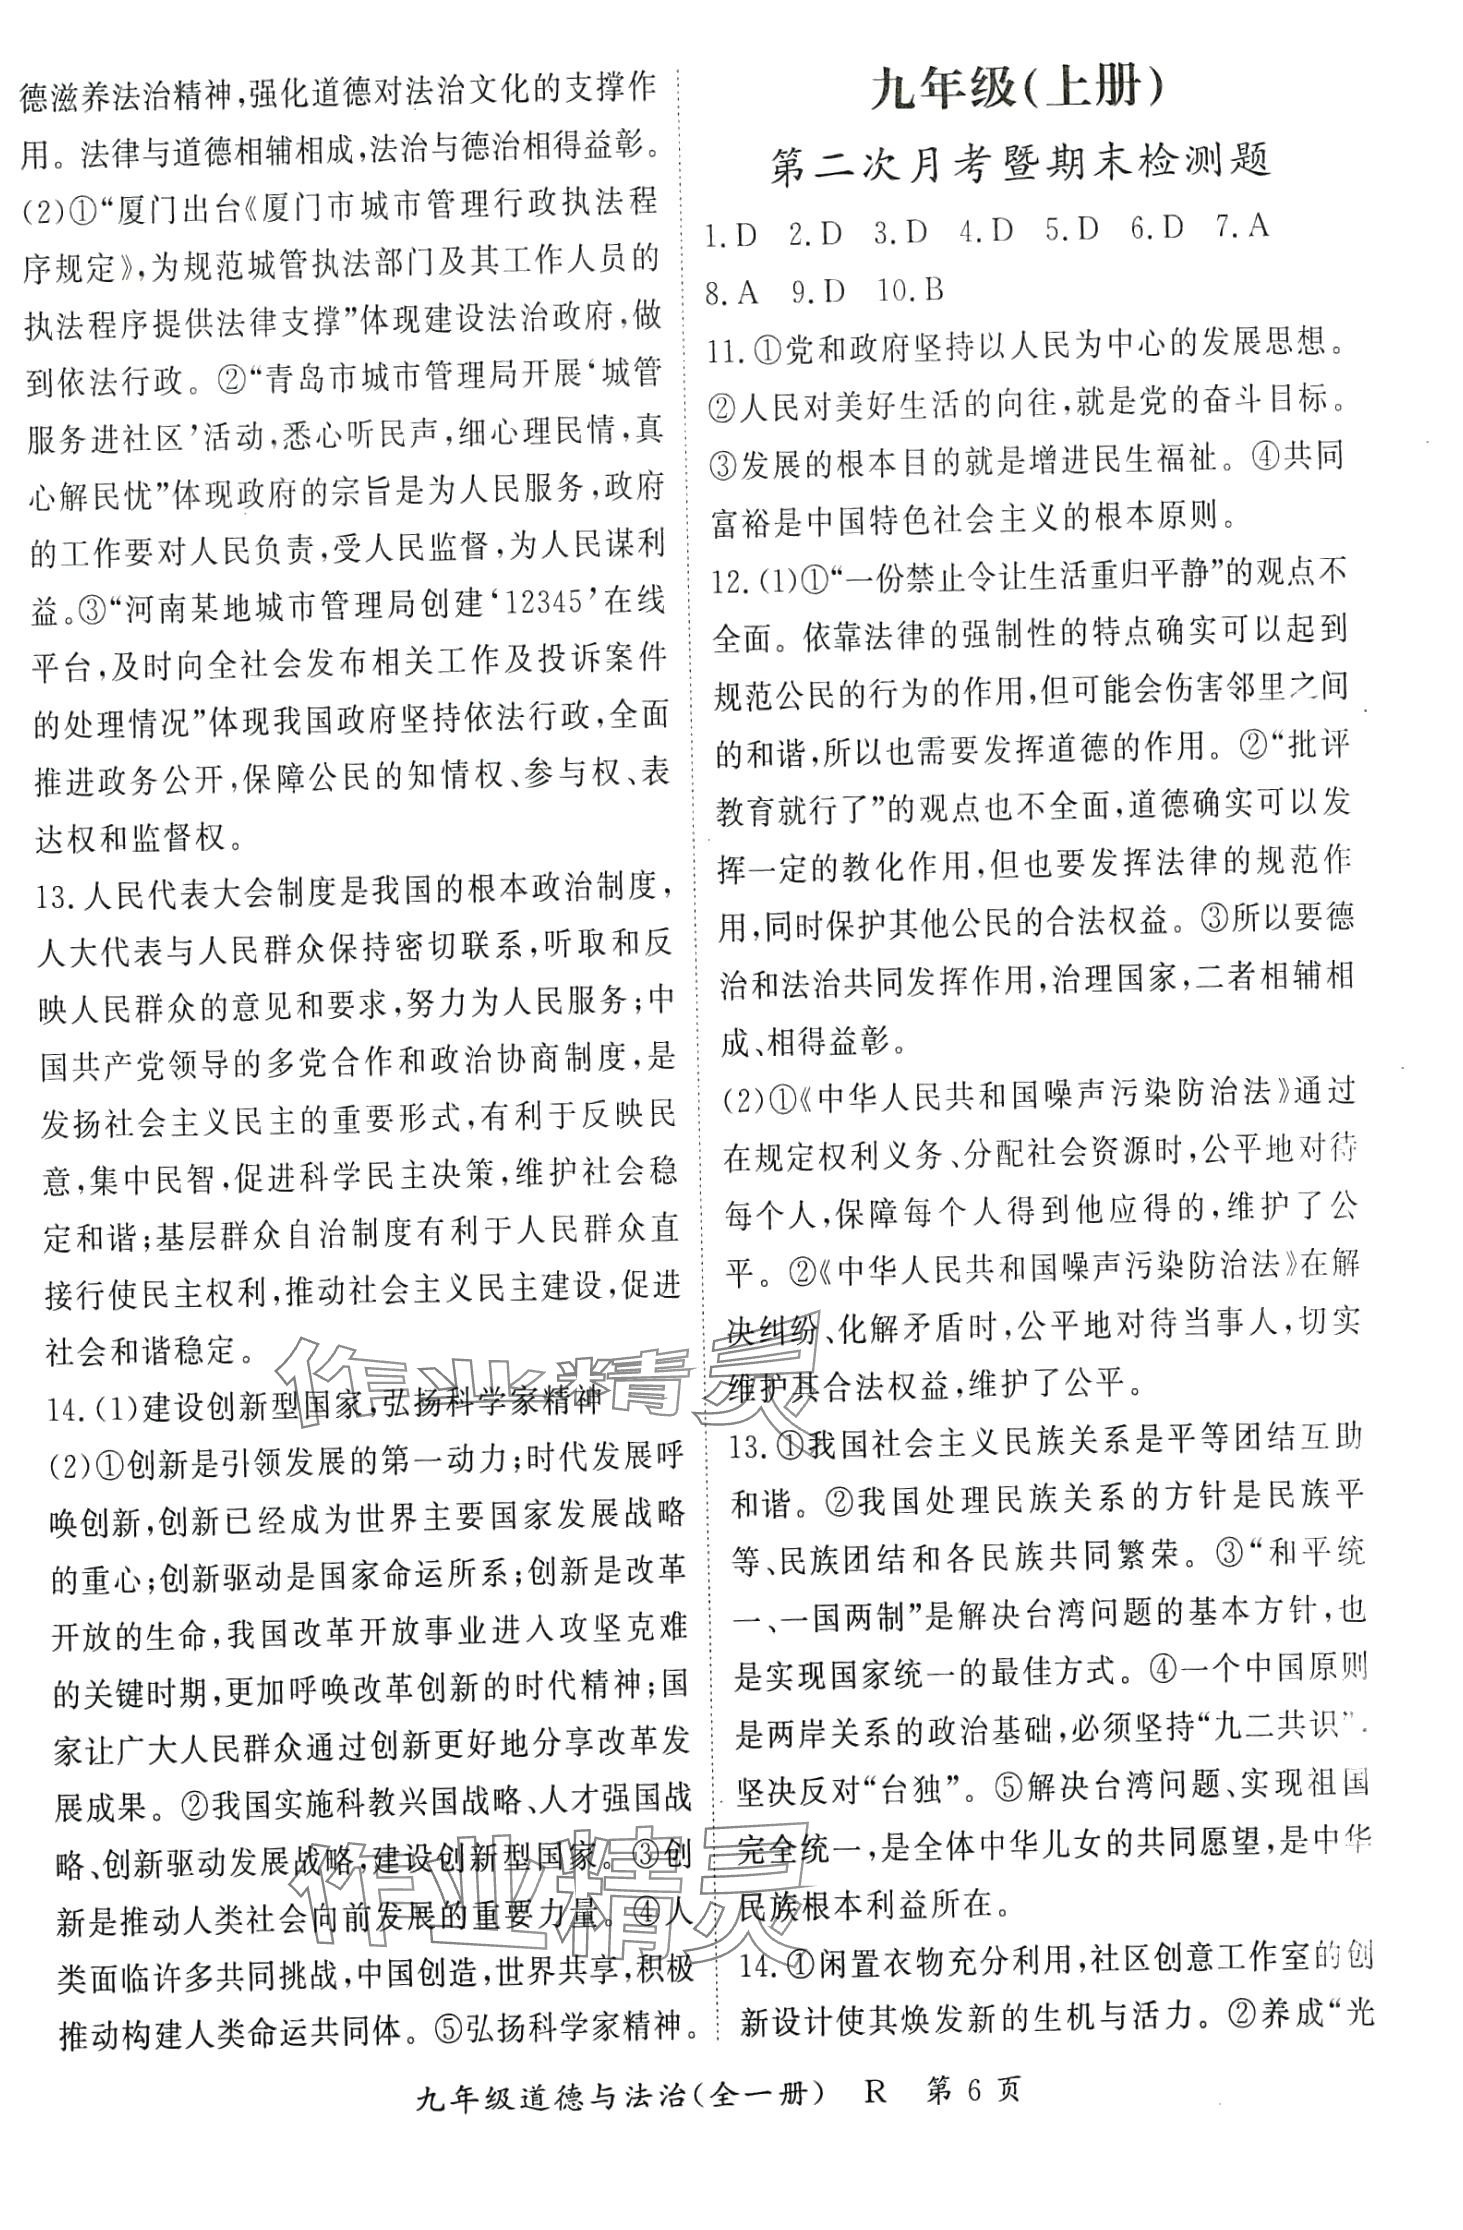 德滋养法治精神，强化道德对法治文化的支撑作
用。法律与道德相辅相成，法治与德治相得益彰。
(2)①“厦门出台《厦门市城市管理行政执法程
序规定》，为规范城管执法部门及其工作人员的
执法程序提供法律支撑”体现建设法治政府，做
到依法行政。②“青岛市城市管理局开展‘城管
服务进社区’活动，悉心听民声，细心理民情，真
心解民忧”体现政府的宗旨是为人民服务，政府
的工作要对人民负责，受人民监督，为人民谋利
益。③“河南某地城市管理局创建‘12345’在线
平台，及时向全社会发布相关工作及投诉案件
的处理情况”体现我国政府坚持依法行政，全面
推进政务公开，保障公民的知情权、参与权、表
达权和监督权。
13.人民代表大会制度是我国的根本政治制度，
人大代表与人民群众保持密切联系，听取和反
映人民群众的意见和要求，努力为人民服务；中
国共产党领导的多党合作和政治协商制度，是
发扬社会主义民主的重要形式，有利于反映民
意，集中民智，促进科学民主决策，维护社会稳
定和谐；基层群众自治制度有利于人民群众直
接行使民主权利，推动社会主义民主建设，促进
社会和谐稳定。
14.(1)建设创新型国家，弘扬科学家精神
(2)①创新是引领发展的第一动力；时代发展呼
唤创新，创新已经成为世界主要国家发展战略
的重心；创新驱动是国家命运所系；创新是改革
开放的生命，我国改革开放事业进入攻坚克难
的关键时期，更加呼唤改革创新的时代精神；国
家让广大人民群众通过创新更好地分享改革发
展成果。②我国实施科教兴国战略、人才强国战
略、创新驱动发展战略，建设创新型国家。③创
新是推动人类社会向前发展的重要力量。④人
类面临许多共同挑战，中国创造，世界共享，积极
推动构建人类命运共同体。⑤弘扬科学家精神。
九年级(上册)
第二次月考暨期末检测题
1.D 2.D 3.D 4.D 5.D 6.D 7.A
8.A 9.D 10.B
11.①党和政府坚持以人民为中心的发展思想。
②人民对美好生活的向往，就是党的奋斗目标。
③发展的根本目的就是增进民生福祉。④共同
富裕是中国特色社会主义的根本原则。
12.(1)①“一份禁止令让生活重归平静”的观点不
全面。依靠法律的强制性的特点确实可以起到
规范公民的行为的作用，但可能会伤害邻里之间
的和谐，所以也需要发挥道德的作用。②“批评
教育就行了”的观点也不全面，道德确实可以发
挥一定的教化作用，但也要发挥法律的规范作
用，同时保护其他公民的合法权益。③所以要德
治和法治共同发挥作用，治理国家，二者相辅相
成、相得益彰。
(2)①《中华人民共和国噪声污染防治法》通过
在规定权利义务、分配社会资源时，公平地对待
每个人，保障每个人得到他应得的，维护了公
平。②《中华人民共和国噪声污染防治法》在解
决纠纷、化解矛盾时，公平地对待当事人，切实
维护其合法权益，维护了公平。
13.①我国社会主义民族关系是平等团结互助
和谐。②我国处理民族关系的方针是民族平
等、民族团结和各民族共同繁荣。③“和平统
一、一国两制”是解决台湾问题的基本方针，也
是实现国家统一的最佳方式。④一个中国原则
是两岸关系的政治基础，必须坚持“九二共识”，
坚决反对“台独”。⑤解决台湾问题、实现祖国
完全统一，是全体中华儿女的共同愿望，是中华
民族根本利益所在。
14.①闲置衣物充分利用，社区创意工作室的创
新设计使其焕发新的生机与活力。②养成“光
作业精灵
作业精灵
九年级道德与法治(全一册) R 第6页